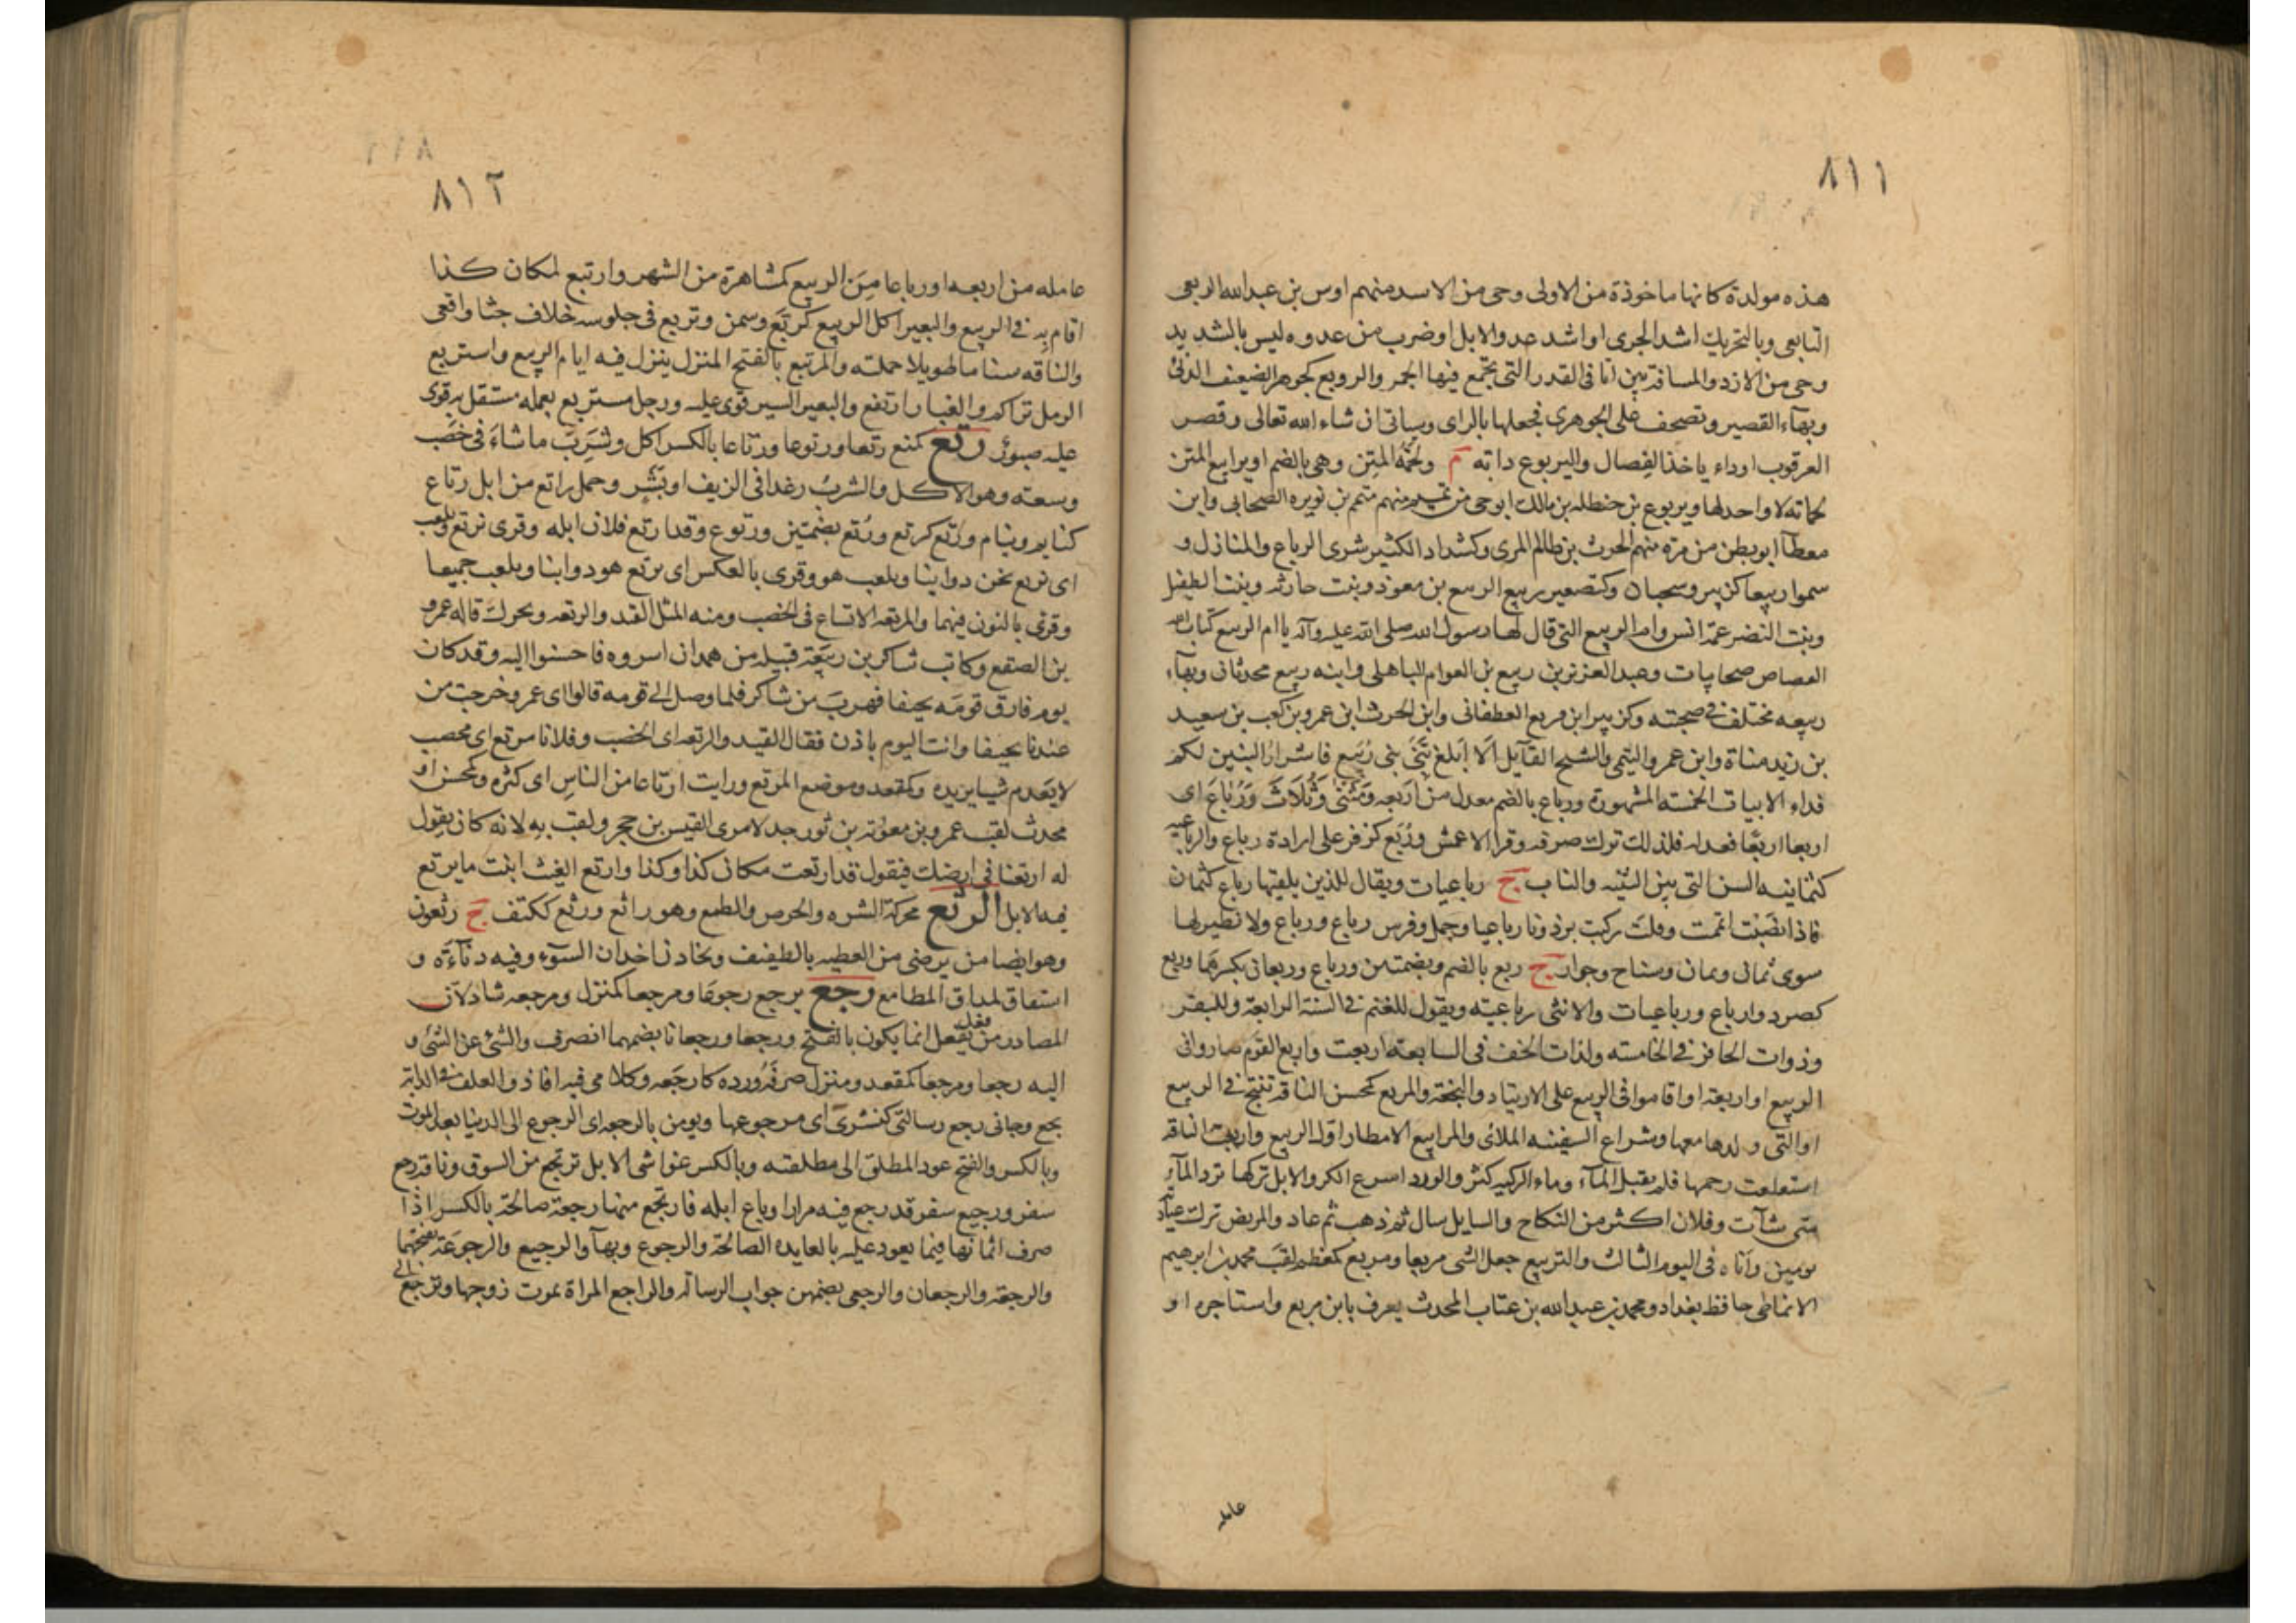 ٨١١
هذه مولدة كانها ماخوذة من الاولى وحى من الاسد منهم اوس بن عبد الله الربعى
التابعى وبالتحريك اشد الجرى او اشد عدو الابل او ضرب من عدوه وليس بالشديد
وحى من الازد والمسافة بين اثافى القدر التى يجتمع فيها الجمر والروبع كجوهر الضعيف الدنى
وبهاء القصير وتصحف على الجوهرى فجعلها بالزاى وسياتى ان شاء الله تعالى وقصر
العرقوب او داء ياخذ الفصال واليربوع دابه م ولحمة المتن وهى بالضم او يرابيع المتن
لحماته لا واحد لها ويربوع بن حنظله بن مالك ابو حى من تميم منهم متمم بن نويره الصحابى وابن
ابو بطن من مره منهم الحرث بن ظالم المرى وكشداد الكثير شرى الرباع والمنازل و
سموا ربيعا كزبير وسحبان وكتصغير ربيع الربيع بن معوذ وبنت حارثه وبنت الطفيل
وبنت النضر عمة انس وام الربيع التى قال لها رسول الله صلى الله عليه وآله يا ام الربيع كتاب الله
القصاص صحابيات وعبد العزيز بن ربيع بن العوام الباهلى وابنه ربيع محدثان وبهاء
ربيعه مختلف فى صحبته وكزبير ابن قريع الغطفانى وابن الحرث ابن عمرو بن كعب بن سعيد
بن زيد مناة وابن عمرو التيمى والشيح القايل الا ابلغ بنى بنى ربيع فاشرار البنين لكم
فداء الابيات الخمسه المشهورة ورباع بالضم معدل من اربعه ومثنى وثلاث ورباع اى
اربعا اربعا فعدله فلذلك ترك صرفه وقرا الاعمش وربع كزفر على ارادة رباع والرباعيه
كثمانيه السن التى بين الثنيه والناب ج رباعيات ويقال للذى يلقيها رباع كثمان
فاذا نصبت اتممت وقلت ركبت برذونا رباعيا وجمل وفرس رباع ورباع ولا نظير لها
سوى ثمانى ويمان وسناح وجوار ج ربع بالضم وبضمتين ورباع وربعان بكسرهما وربع
كصرد وارباع ورباعيات والانثى رباعيته ويقول للغنم فى السنة الرابعة وللبقر
وذوات الحافر فى الخامسه ولذات الخف فى السابعة اربعت واربع القوم صاروا فى
الربيع او اربعة او اقاموا فى الربيع على الارتياد والنجعة والمربع كمحسن الناقه تنتج فى الربيع
او التى ولدها معها وشراع السفينه الملائى والمرابيع الامطار اول الربيع واربعت الناقه
استغلقت رحمها فلم يقبل المآء وماء الركيه كثر والورد اسرع الكر والابل تركها ترد المآء
متى شآت وفلان اكثر من النكاح والسايل سال ثم ذهب ثم عاد والمريض ترك عيادته
يومين وآتاه فى اليوم الثالث والتربيع جعل الشى مربعا ومربع كمعظم لقب محمد بن ابرهيم
الانماطى حافظ بغداد ومحمد بن عبد الله بن عتاب المحدث يعرف بابن مربع واستاجره او
عامله
٨١٢
عامله من اربعه او رباعا من الربيع كمشاهرة من الشهر وارتبع لمكان كذا
اقام به فى الربيع والبعير اكل الربيع كربع وسمن وتربع فى جلوسه خلاف جثا واقعى
والناقه سناما طويلا حملته والمرتبع بالفتح المنزل ينزل فيه ايام الربيع واستربع
الرمل تراكم والغبار ارتفع والبعير السير قوى عليه ورجل مستربع بعمله مستقل به قوى
عليه صبور رتع كمنع رتعا ورتوعا ورتاعا بالكسر اكل وشرب ما شاء فى خصب
وسعته وهو الاكل والشرب رغدا فى الريف او بشر وجمل راتع من ابل رتاع
كنايم ونيام ورتع كركع ورتع بضمتين ورتوع وقد ارتع فلان ابله وقرى نرتع ويلعب
اى نرتع نحن دوابنا ويلعب هو وقرى بالعكس اى يرتع هو دوابنا ويلعب جميعا
وقرئ بالنون فيهما والرتعه الاتساع فى الخصب ومنه المثل القيد والرتعه ويحرك قاله عمرو
بن الصعق وكانت شاكر بن ربيعة قبيله من همدان اسروه فاحسنوا اليه وقد كان
يوم فارق قومه نحيفا فهرب من شاكر فلما وصل الى قومه قالوا اى عمرو خرجت من
عندنا نحيفا وانت اليوم بادن فقال القيد والرتعه اى الخصب وفلانا مرتع اى مخصب
لا يعدم شيا يريده وكمقعد موضع المرتع ورايت ارتاعا من الناس اى كثره وكمحسن او
محدث لقب عمرو بن معوية بن ثور جد لامرى القيس بن حجر ولقب به لانه كان يقول
له ارتعنا فى ارضك فيقول قد ارتعت مكان كذا وكذا وارتع الغيث انبت ما يرتع
فيه الابل الرثع محركة الشره والحرص والطمع وهو راثع ورثع ككتف ج رثعون
وهو ايضا من يرضى من العطيه بالطفيف ويخادن اخدان السوء وفيه دناءة و
اسفاف لمداق المطامع رجع يرجع رجوعا ومرجعا كمنزل ومرجعه شاذ لان
المصادر من فعل يفعل انما يكون بالفتح ورجعا ورجعانا بضمهما انصرف والشئ عن الشئ و
اليه رجعا ومرجعا كمقعد ومنزل صرفه ورده كارجعه وكلامى فيه افاد والعلف فى الدابة
نجع وجانى رجع رسالتى كنشرى اى مرجوعها ويومن بالرجعه اى الرجوع الى الدنيا بعد الموت
وبالكسر والفتح عود المطلق الى مطلقته وبالكسر عواشى الابل ترتجع من السوق وناقة رجع
سفر ورجيع سفر قد رجع فيه مرارا وباع ابله فارتجع منها رجعة صالحة بالكسر اذا
صرف اثمانها فيما يعود عليه بالعايده الصالحة والرجوع وبهآ والرجيع والرجوعة بفتحهما
والرجعة والرجعان والرجعى بضمهن جواب الرسالة والراجع المراة يموت زوجها وترجع الى